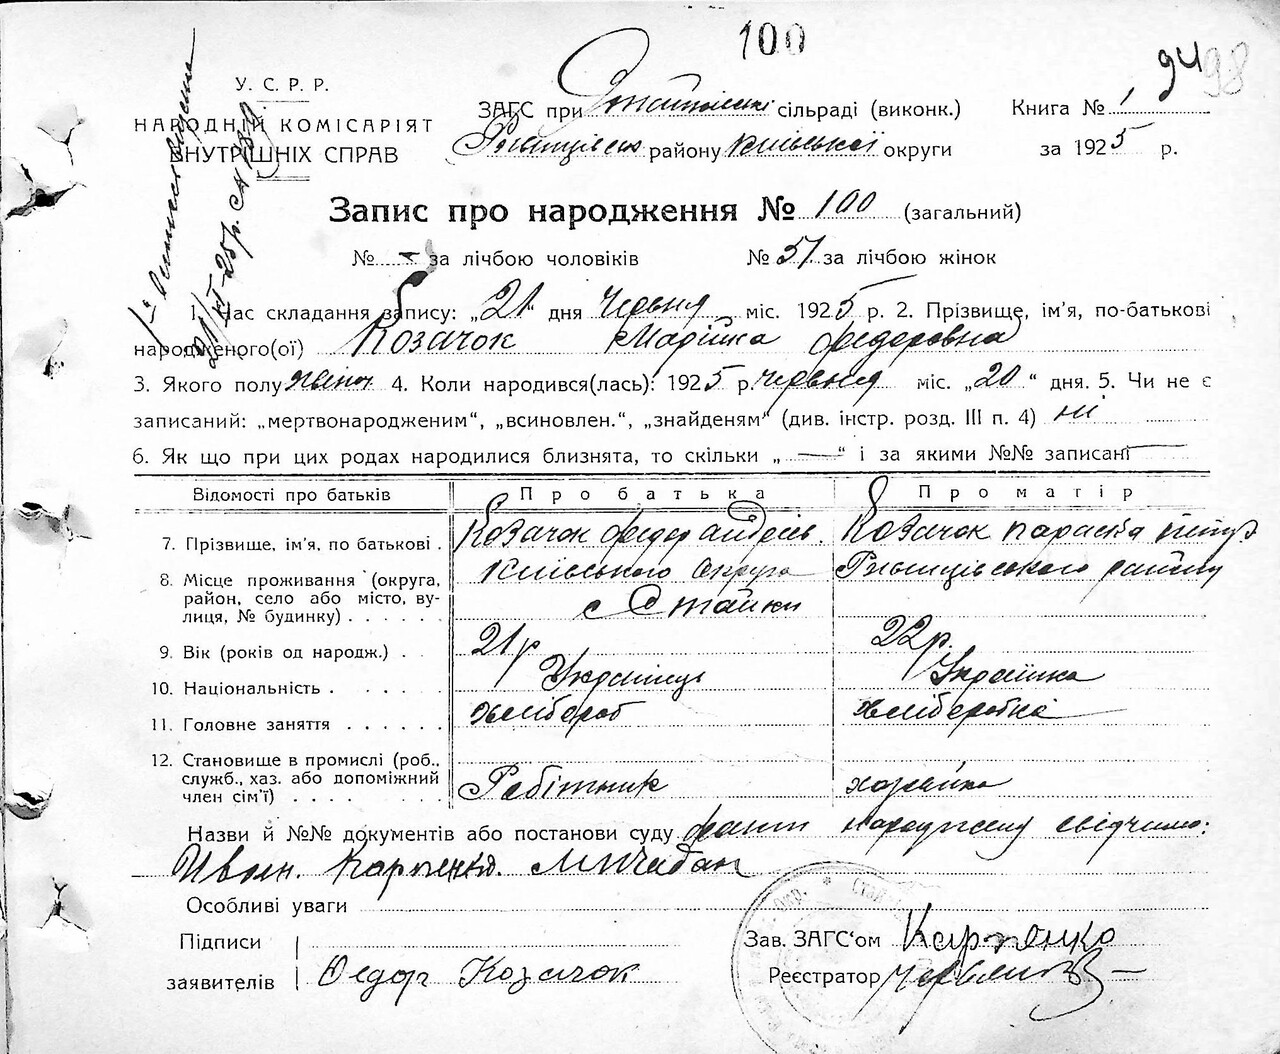 100
94 98
У. С. Р. Р.
НАРОДНІЙ КОМІСАРІЯТ
ВНУТРІШНІХ СПРАВ
ЗАГС при сільраді (виконк.)
району Київської округи
Книга № 1
за 1925 р.
Запис про народження № 100 (загальний)
№ - за лічбою чоловіків № 51 за лічбою жінок
1. Час складання запису: „21“ дня червня міс. 1925 р. 2. Прізвище, ім'я, по-батькові
народженого(ої) Козачок Марійка Федоровна
3. Якого полу жіноч 4. Коли народився(лась): 1925 р. червня міс. „20“ дня. 5. Чи не є
записаний: „мертвонародженим“, „всиновлен.“, „знайденям“ (див. інстр. розд. III п. 4) ні
6. Як що при цих родах народилися близнята, то скільки „—“ і за якими №№ записані —
Відомості про батьків Про батька Про матір
7. Прізвище, ім'я, по батькові. Козачок Федор Андреів. Козачок Параска
8. Місце проживання (округа, Київського Округа району
район, село або місто, ву- с Стайки
лиця, № будинку) . . . . . .
9. Вік (років од народж.) . . 21 р 22 р.
10. Національність . . . . . . Українець Українка
11. Головне заняття . . . . . . хлібороб хліборобка
12. Становище в промислі (роб.,
служб., хаз. або допоміжний
член сім'ї) . . . . . . Робітник хозяйка
Назви й №№ документів або постанови суду факт свідчимо:
Карпенко.
Особливі уваги
Підписи
заявителів Федор Козачок
Зав. ЗАГС'ом Карпенко
Реєстратор